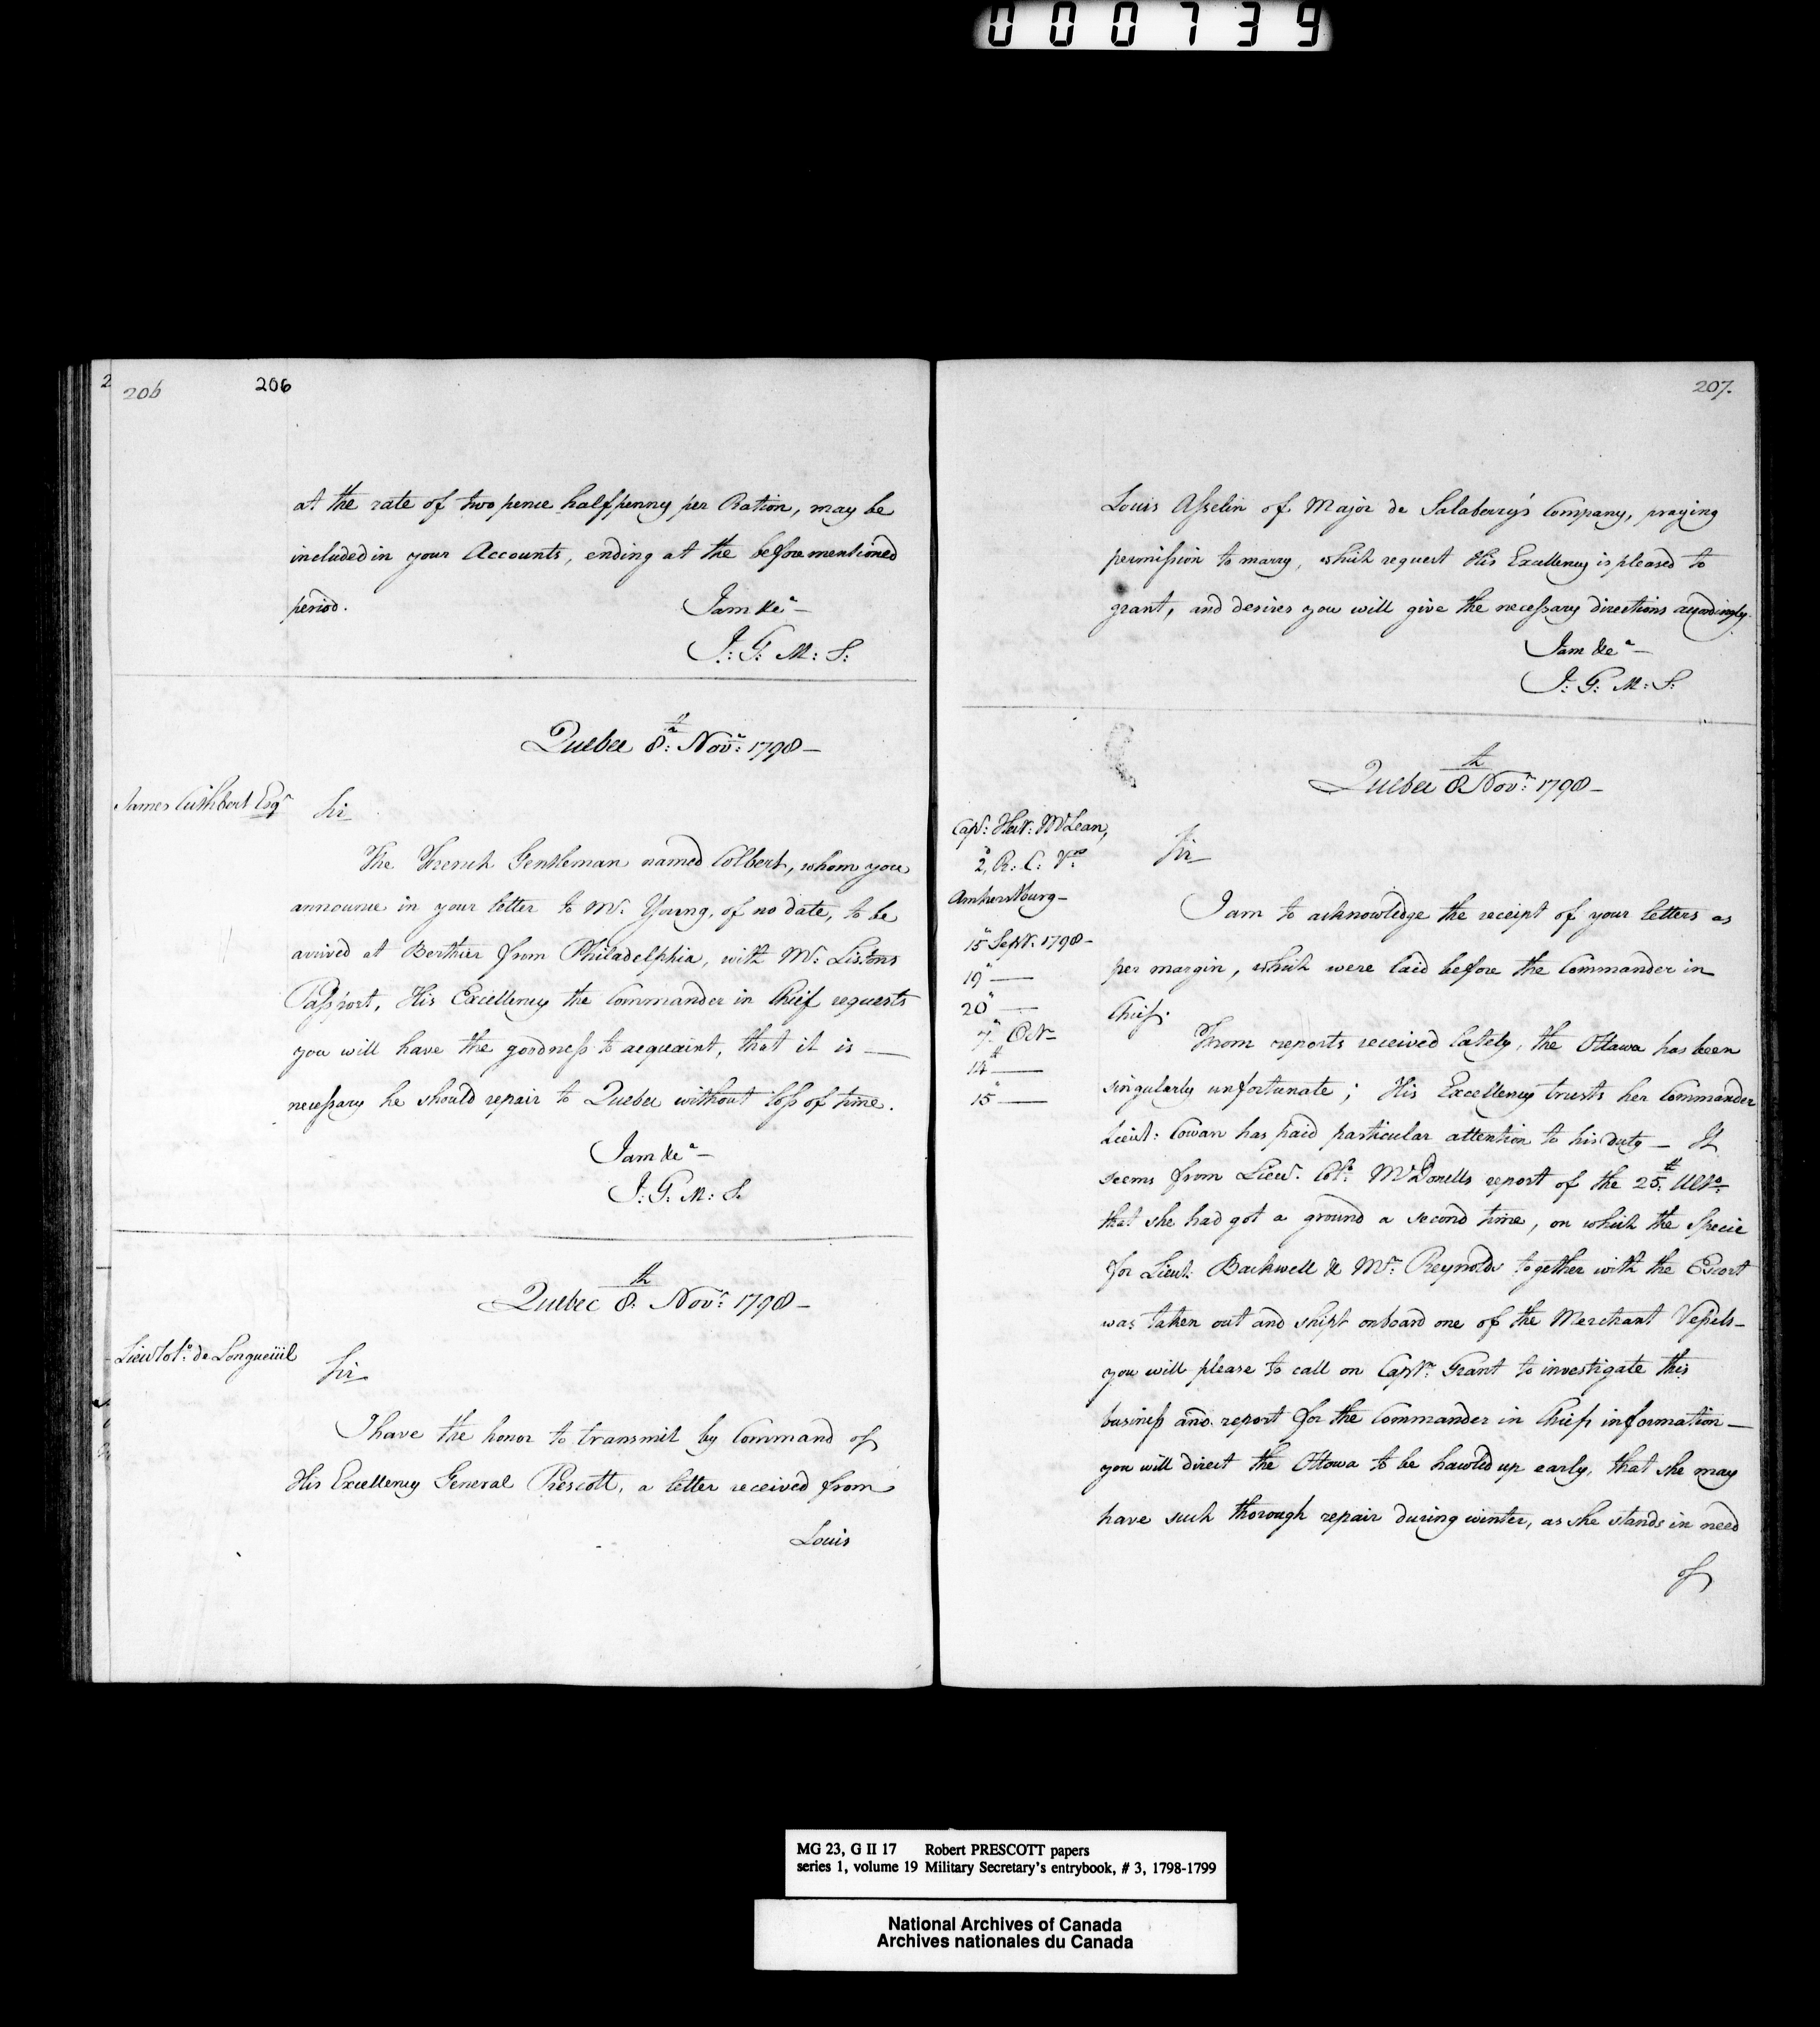 000739
206 206
at the rate of two pence halfpenny per Ration, may be
included in your Accounts, ending at the beforementioned
period. I am &ca—
J: G: M: S:
Quebec 8th: Novr: 1798—
James Cuthbert Esqr
Sir
The French Gentleman named Colbert, whom you
announce in your letter to Mr. Young, of no date, to be
arrived at Berthier from Philadelphia, with Mr: Listons
Passport, His Excellency the Commander in Chief requests
you will have the goodness to acquaint, that it is —
necessary he should repair to Quebec without loss of time.
I am &ca—
J: G: M: S.
Quebec 8th: Novr: 1798—
Lieut Colo: de Longueüil
Sir
I have the honor to transmit by Command of
His Excellency General Prescott, a letter received from
Louis
207.
Louis Asselin of Major de Salaberry's Company, praying
permission to marry, which request His Excellency is pleased to
grant, and desires you will give the necessary directions accordingly.
I am &ca—
J: G: M: S:
Quebec 8th Novr: 1798—
Capt: Hect: McLean,
2, R: C: Vrs
Amherstburg—
15" Sept: 1798—
19" —
20" —
7" Octr—
14th —
15" —
Sir
I am to acknowledge the receipt of your letters as
per margin, which were laid before the Commander in
Chief.
From reports received lately, the Ottawa has been
singularly unfortunate; His Excellency trusts her Commander
Lieut: Cowan has paid particular attention to his duty — It
seems from Lieut. Colo: McDonells report of the 25th: Ulto:
that she had got a ground a second time, on which the Specie
for Lieut. Backwell & Mr: Reynolds together with the Escort
was taken out and shipt onboard one of the Merchant Vessels—
you will please to call on Captn: Grant to investigate this
business and report for the Commander in Chiefs information—
you will direct the Ottowa to be hawled up early, that she may
have such thorough repair during winter, as she stands in need
of
MG 23, G II 17 Robert PRESCOTT papers
series 1, volume 19 Military Secretary's entrybook, # 3, 1798-1799
National Archives of Canada
Archives nationales du Canada